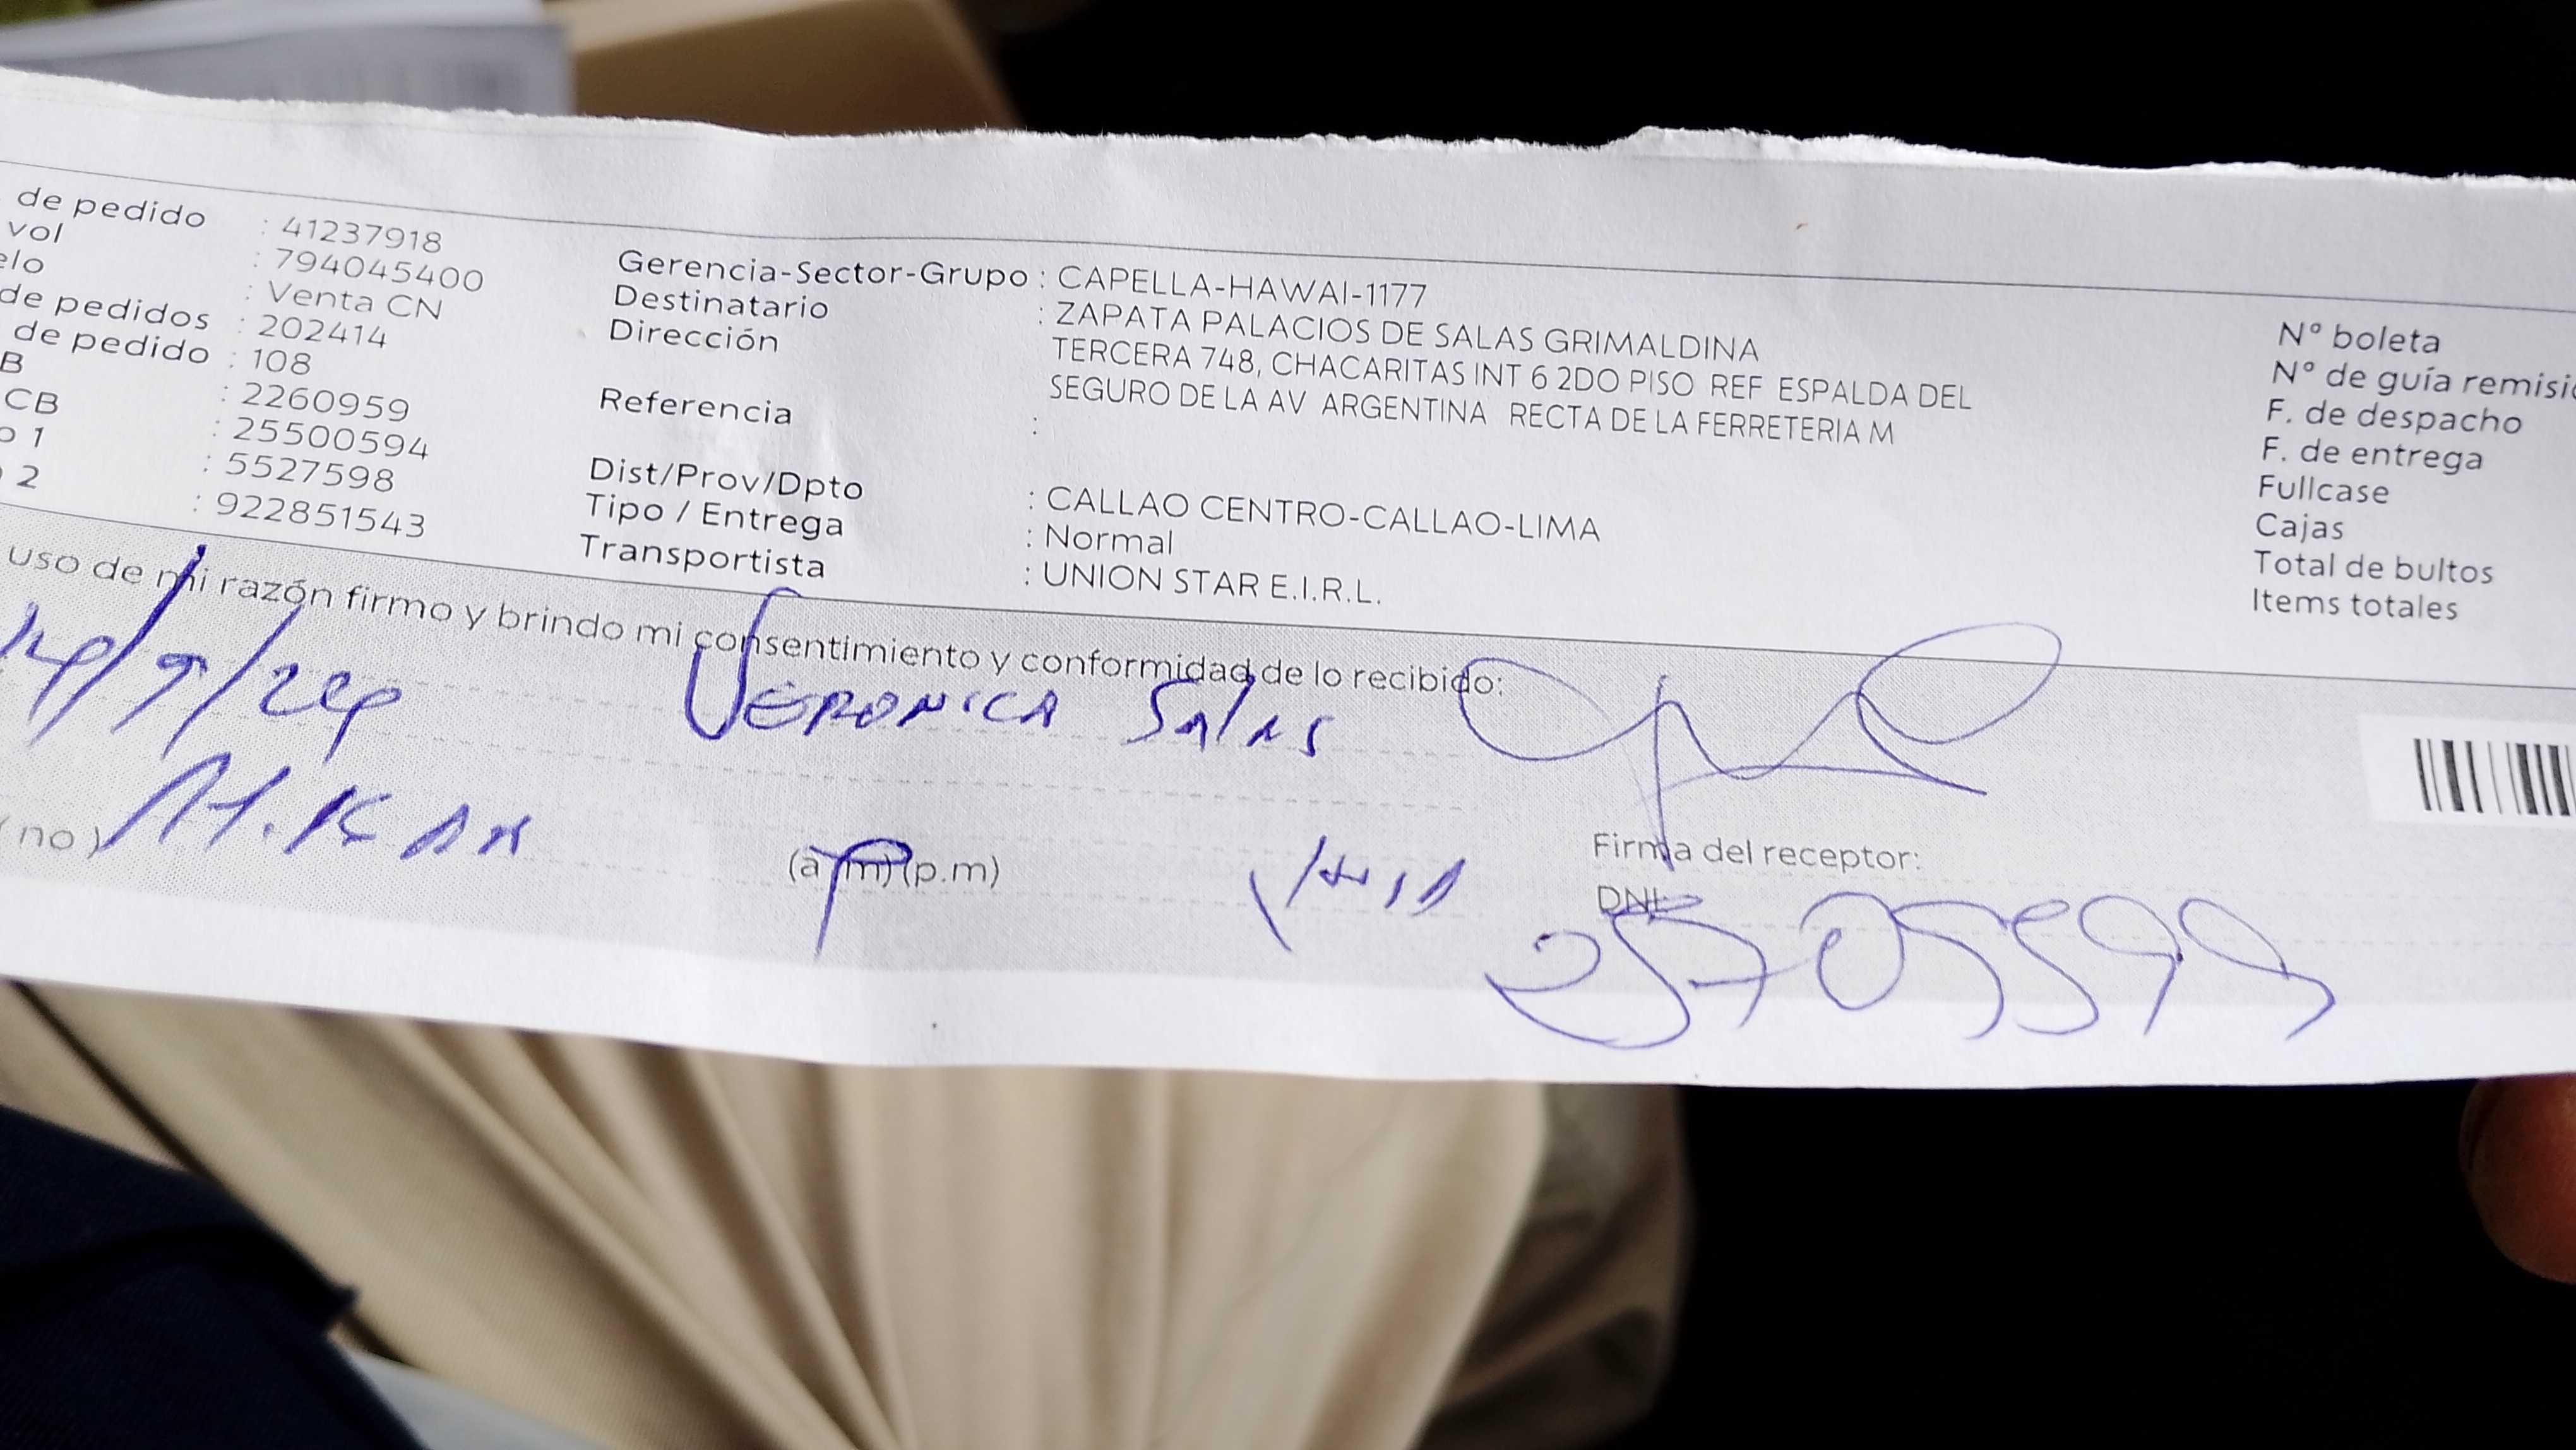 de pedido : 41237918
vol : 794045400
elo : Venta CN
de pedidos : 202414
de pedido : 108
B : 2260959
CB : 25500594
o 1 : 5527598
2 : 922851543
Gerencia-Sector-Grupo : CAPELLA-HAWAI-1177
Destinatario : ZAPATA PALACIOS DE SALAS GRIMALDINA
Dirección TERCERA 748, CHACARITAS INT 6 2DO PISO REF ESPALDA DEL
SEGURO DE LA AV ARGENTINA RECTA DE LA FERRETERIA M
Referencia :
Dist/Prov/Dpto : CALLAO CENTRO-CALLAO-LIMA
Tipo / Entrega : Normal
Transportista : UNION STAR E.I.R.L.
Nº boleta
Nº de guía remisió
F. de despacho
F. de entrega
Fullcase
Cajas
Total de bultos
Items totales
uso de mi razón firmo y brindo mi consentimiento y conformidad de lo recibido:
VERONICA Salas
no )
(a.m)(p.m)
Firma del receptor:
DNI:
25705599